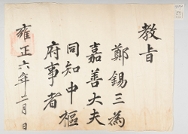 教旨
鄭錫三為
嘉善大夫
同知中樞
府事者
雍正六年二月 日